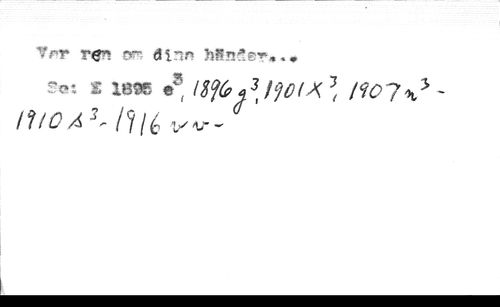 Var ren om dina händer...
Se: E 1895 e³, 1896 g³, 1901 X³, 1907 n³ -
1910 s³ - 1916 v v -